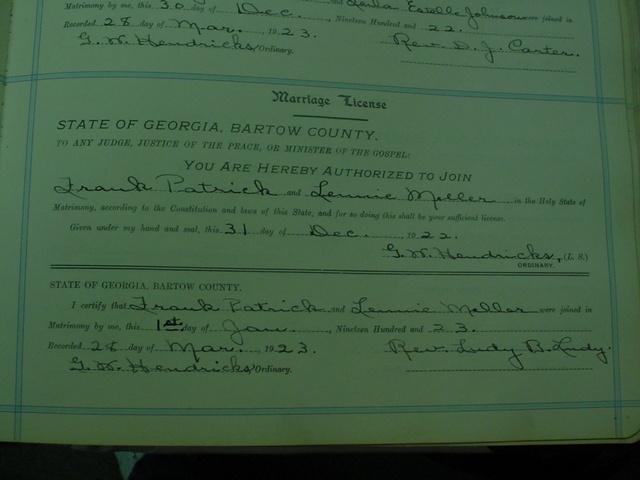 Matrimony by me, this 30 day of Dec., Nineteen Hundred and 22.
Recorded 28 day of Mar. 1923. Rev. D. J. Carter.
G. W. Hendricks, Ordinary.
Marriage License
STATE OF GEORGIA, BARTOW COUNTY.
TO ANY JUDGE, JUSTICE OF THE PEACE, OR MINISTER OF THE GOSPEL:
YOU ARE HEREBY AUTHORIZED TO JOIN
Frank Patrick and Lennie Meller in the Holy State of
Matrimony, according to the Constitution and laws of this State, and for so doing this shall be your sufficient license.
Given under my hand and seal, this 31 day of Dec. 1922.
G. W. Hendricks, (L. S.)
ORDINARY.
STATE OF GEORGIA, BARTOW COUNTY.
I certify that Frank Patrick and Lennie Meller were joined in
Matrimony by me, this 1st day of Jan., Nineteen Hundred and 23.
Recorded 28 day of Mar., 1923. Rev. Judy B. Judy.
G. W. Hendricks, Ordinary.